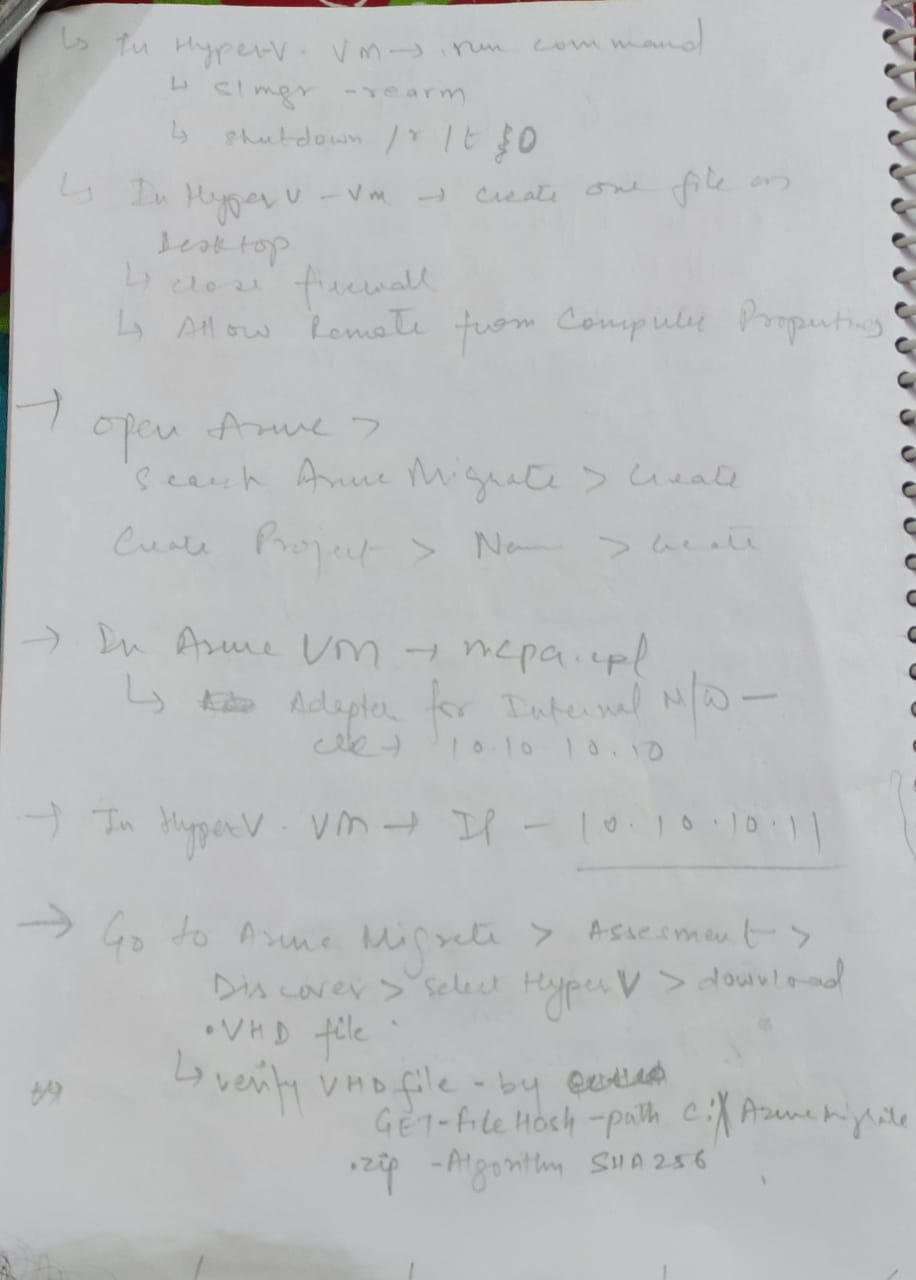 ↳ In HyperV. VM → run command
↳ slmgr -rearm
↳ shutdown /r /t 0
↳ In Hyper V - VM → create one file on
Desktop
↳ close firewall
↳ Allow Remote from Computer Properties
→ open Azure >
Search Azure Migrate > Create
Create Project > Name > Create
→ In Azure VM → ncpa.cpl
↳ Adapter for Internal N/W -
→ 10.10.10.10
→ In HyperV. VM → IP - 10.10.10.11
→ Go to Azure Migrate > Assesment >
Discover > select Hyper V > download
.VHD file
↳ verify VHD file - by
GET-fileHash -path C:\ Azuremigrate
.zip -Algorithm SHA256